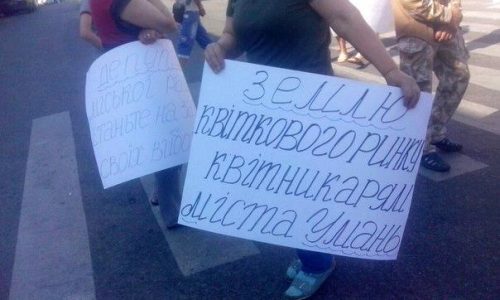 ДЕПУ
міської ра
станьте на за
своїх вибо
ЗЕМЛЮ
КВІТКОВОГО РИНКУ
КВІТНИКАРЯМ
МІСТА УМАНЬ